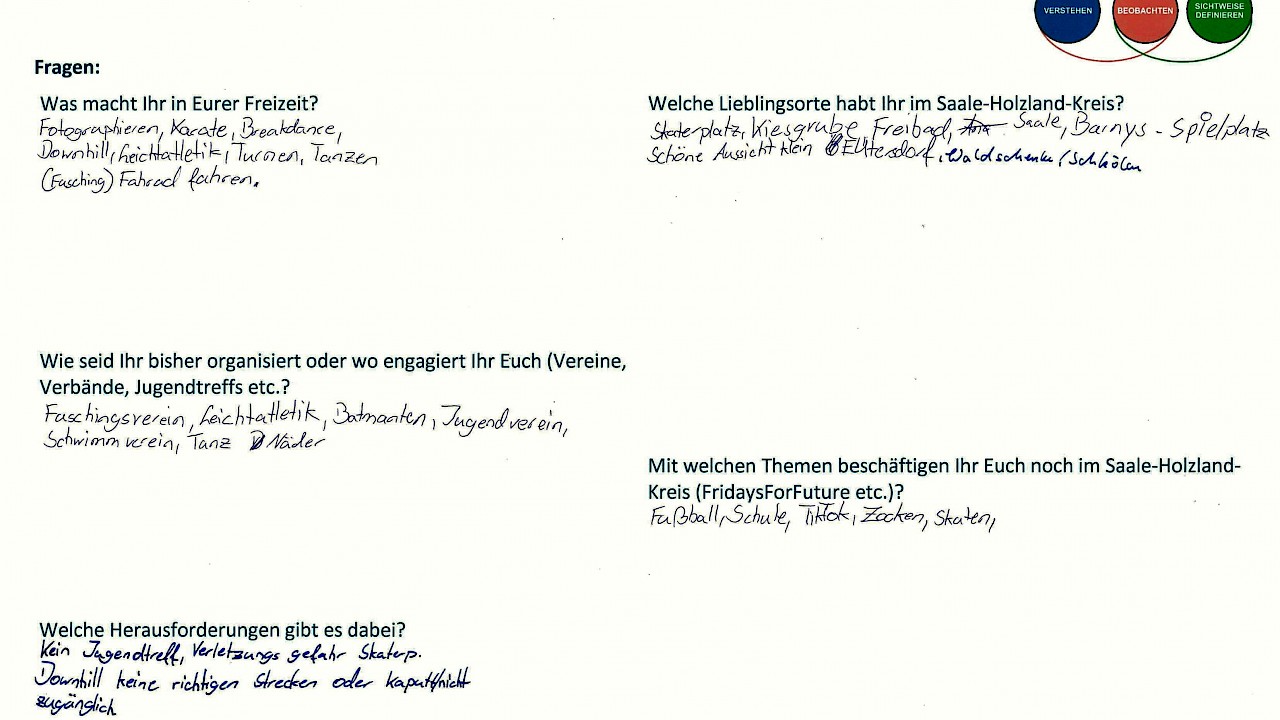 VERSTEHEN
BEOBACHTEN
SICHTWEISE
DEFINIEREN
Fragen:
Was macht Ihr in Eurer Freizeit?
Fotographieren, Karate, Breakdance,
Downhill, Leichtatletik, Turnen, Tanzen
(Fasching) Fahrad fahren.
Welche Lieblingsorte habt Ihr im Saale-Holzland-Kreis?
Skaterplatz, Kiesgrube, Freibad, Saale, Barnys - Spielplatz
Schöne Aussicht klein , Waldschenke / Schkölen
Wie seid Ihr bisher organisiert oder wo engagiert Ihr Euch (Vereine,
Verbände, Jugendtreffs etc.?
Faschingsverein, Leichtatletik, Jugendverein,
Schwimmverein, Tanz
Mit welchen Themen beschäftigen Ihr Euch noch im Saale-Holzland-
Kreis (FridaysForFuture etc.)?
Fußball, Schule, TikTok, Zocken, Skaten,
Welche Herausforderungen gibt es dabei?
Kein Jugendtreff, Verletzungs gefahr Skaterp.
Downhill keine richtigen Strecken oder kaputt/nicht
zugänglich